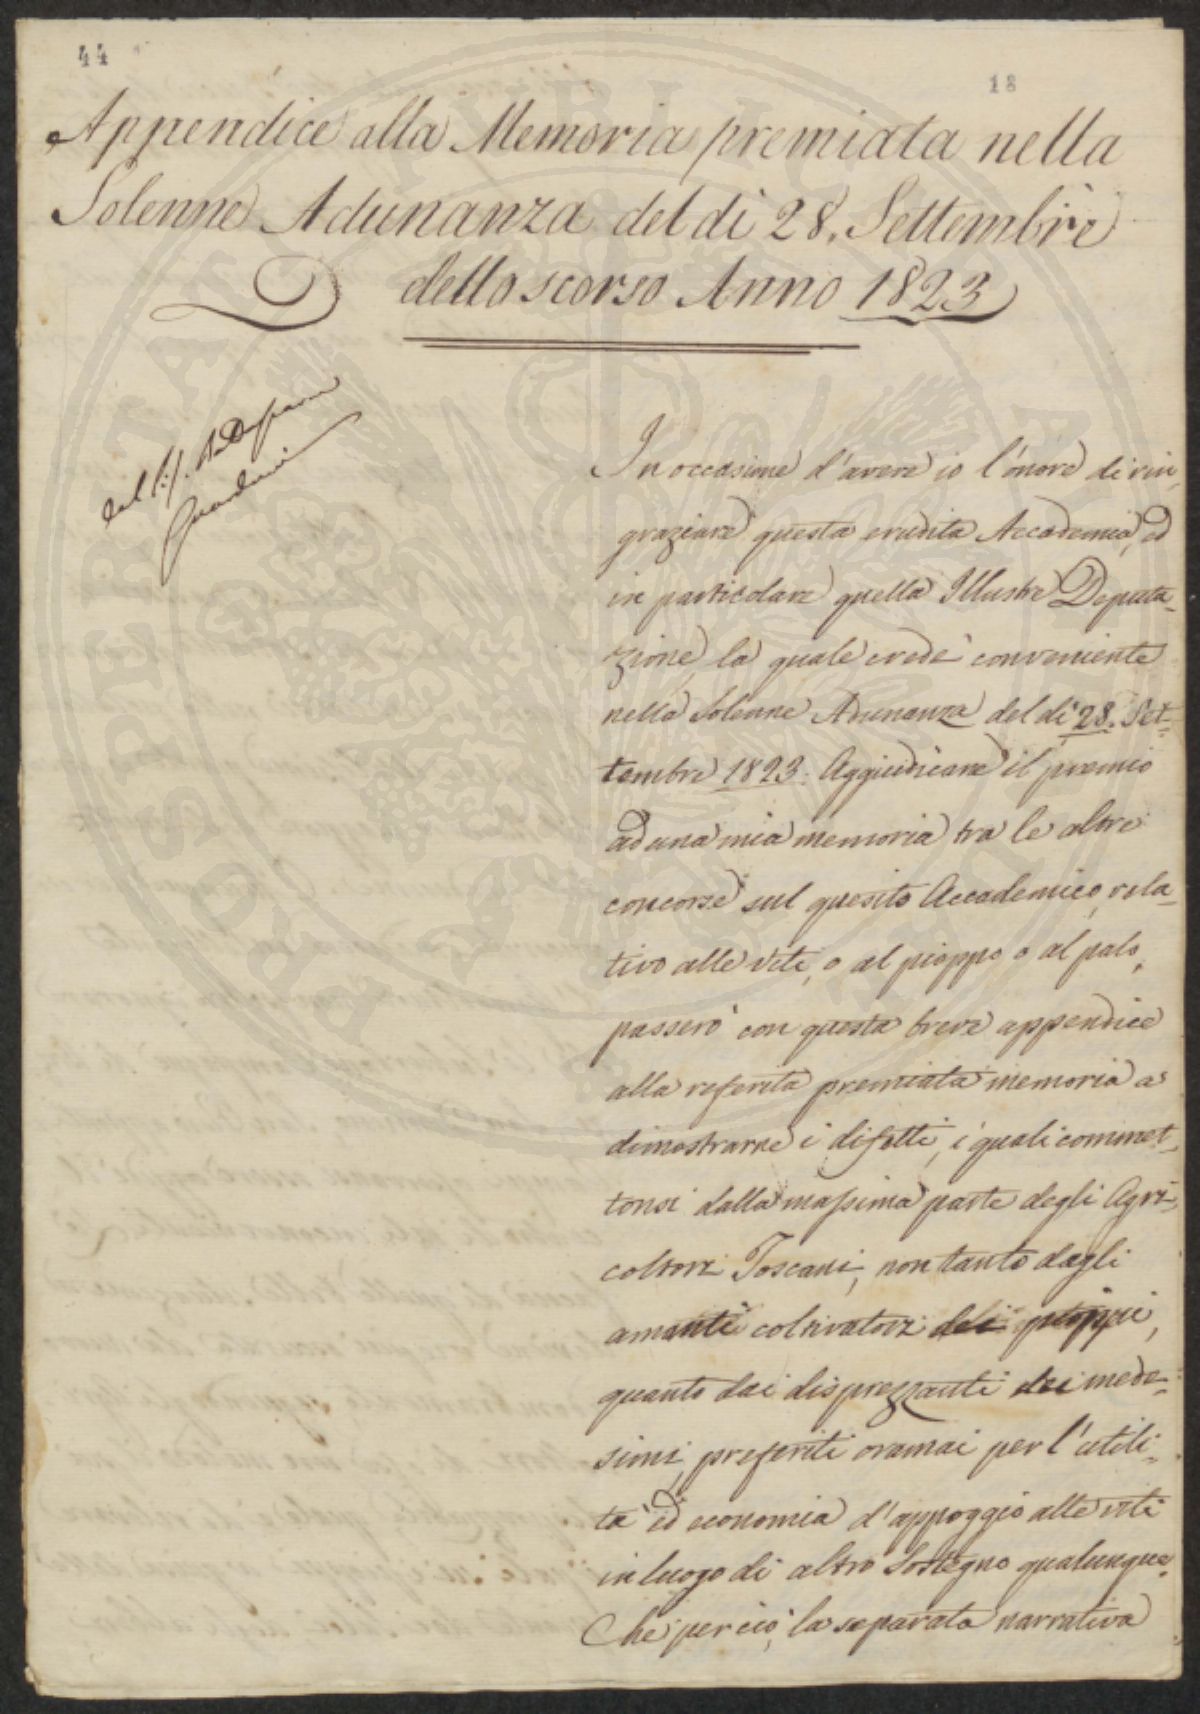 44
18
Appendice alla Memoria premiata nella
Solenne Adunanza del dì 28. Settembre
dello scorso Anno 1823
del
In occasione d'avere io l'onore di rin-
graziare questa erudita Accademia, ed
in particolare quella Illustre Deputa-
zione, la quale credè conveniente
nella Solenne Adunanza del dì 28. Set-
tembre 1823. Aggiudicare il premio
ad una mia memoria tra le altre
concorse sul quesito Accademico, rela-
tivo alle viti, o al pioppo o al palo,
passerò con questa breve appendice
alla referita premiata memoria a
dimostrarne i difetti, i quali commet-
tonsi dalla massima parte degli Agri-
coltori Toscani, non tanto dagli
amanti coltivatori dei pioppi,
quanto dai disprezzanti dei mede-
simi, preferiti oramai per l'utili-
tà ed economia d'appoggio alle viti
in luogo di altro Sostegno qualunque.
Che perciò, la separata narrativa
PROSPERITAS PUBLICA